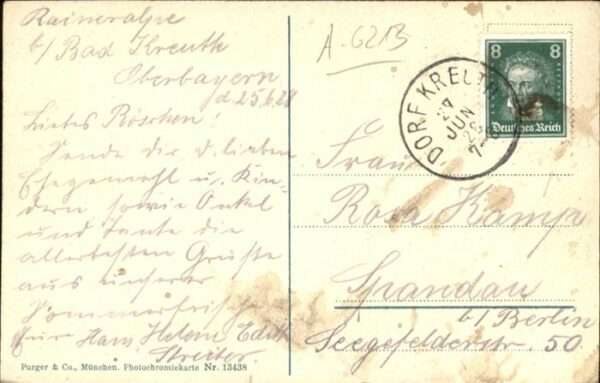 Raineralpe
b/ Bad Kreuth
Oberbayern
d 25.6.28
Liebes Röschen!
Sende dir d. lieben
Ehegemahl u. Kin-
dern sowie Onkel
und Tante die
allerbesten Grüße
aus unserer
Sommerfrische
Hans Helom Edith
Streiter
Purger & Co., München. Photochromiekarte Nr. 13438
A-6213
8 8
Deutsches Reich
DORF KREUTH
27
JUN
7-
Frau
Rosa Kamp
Spandau
b/ Berlin
Seegefelderstr. 50.